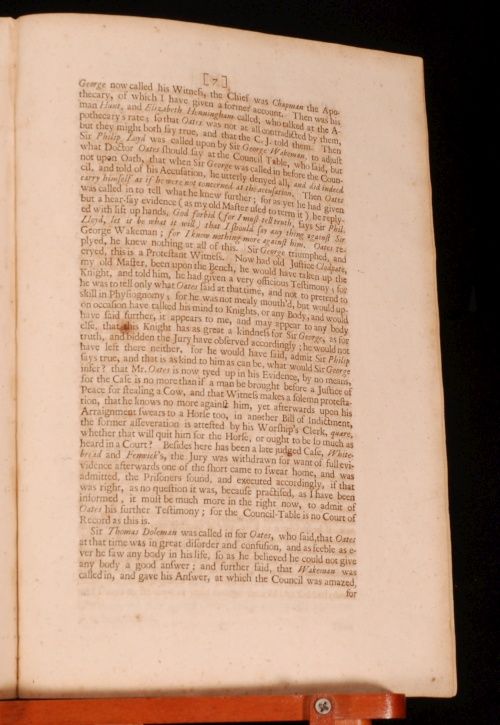 [ 7 ]
George now called his Witneſs, the Chief was Chapman the Apo-
thecary, of which I have given a former account. Then was his
man Hunt, and Elizabeth Henningham called, who talked at the A-
pothecary's rate; ſo that Oates was not at all contradicted by them,
but they might both ſay true, and that the C. J. told them. Then
Sir Philip Lloyd was called upon by Sir George Wakeman, to adjuſt
what Doctor Oates ſhould ſay at the Council Table, who ſaid, but
not upon Oath, that when Sir George was called in before the Coun-
cil, and told of his Accuſation, he utterly denyed all, and did indeed
carry himſelf as if he were not concerned at the accuſation. Then Oates
was called in to tell what he knew further; for as yet he had given
but a hear-ſay evidence (as my old Maſter uſed to term it) he reply-
ed with lift up hands, God forbid (for I muſt tell truth, ſays Sir Phil.
Lloyd, let it be what it will) that I ſhould ſay any thing againſt Sir
George Wakeman; for I know nothing more againſt him. Oates re-
plyed, he knew nothing at all of this. Sir George triumphed, and
cryed, this is a Proteſtant Witneſs. Now had old Juſtice Clodpate,
my old Maſter, been upon the Bench, he would have taken up the
Knight, and told him, he had given a very officious Teſtimony; for
he was to tell only what Oates ſaid at that time, and not to pretend to
skill in Phyſiognomy; for he was not mealy mouth'd, but would up-
on occaſion have talked his mind to Knights, or any Body, and would
have ſaid further, it appears to me, and may appear to any body
elſe, that this Knight has as great a kindneſs for Sir George, as for
truth, and bidden the Jury have obſerved accordingly; he would not
have left there neither, for he would have ſaid, admit Sir Philip
ſays true, and that is as kind to him as can be, what would Sir George
infer? that Mr. Oates is now tyed up in his Evidence, by no means,
for the Caſe is no more than if a man be brought before a Juſtice of
Peace for ſtealing a Cow, and that Witneſs makes a ſolemn proteſta-
tion, that he knows no more againſt him, yet afterwards upon his
Arraignment ſwears to a Horſe too, in another Bill of Indictment,
the former aſſeveration is atteſted by his Worſhip's Clerk, quære,
whether that will quit him for the Horſe, or ought to be ſo much as
heard in a Court? Beſides here has been a late judged Caſe, White-
bread and Fenwick's, the Jury was withdrawn for want of full evi-
vidence afterwards one of the ſhort came to ſwear home, and was
admitted, the Priſoners found, and executed accordingly, if that
was right, as no queſtion it was, becauſe practiſed, as I have been
informed, it muſt be much more in the right now, to admit of
Oates his further Teſtimony; for the Council-Table is no Court of
Record as this is.
Sir Thomas Doleman was called in for Oates, who ſaid, that Oates
at that time was in great diſorder and confuſion, and as feeble as e-
ver he ſaw any body in his life, ſo as he believed he could not give
any body a good anſwer; and further ſaid, that Wakeman was
called in, and gave his Anſwer, at which the Council was amazed,
for